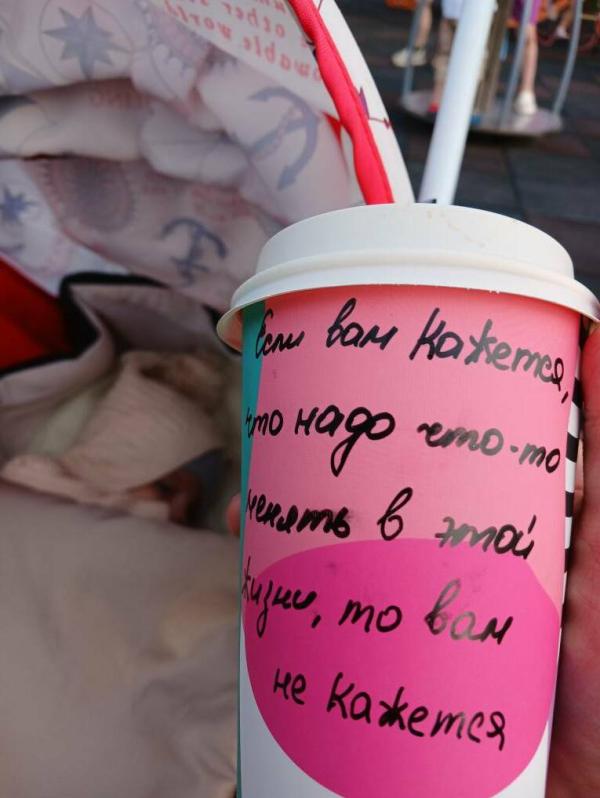 other
Если вам кажется,
что надо что-то
менять в этой
жизни, то вам
не кажется